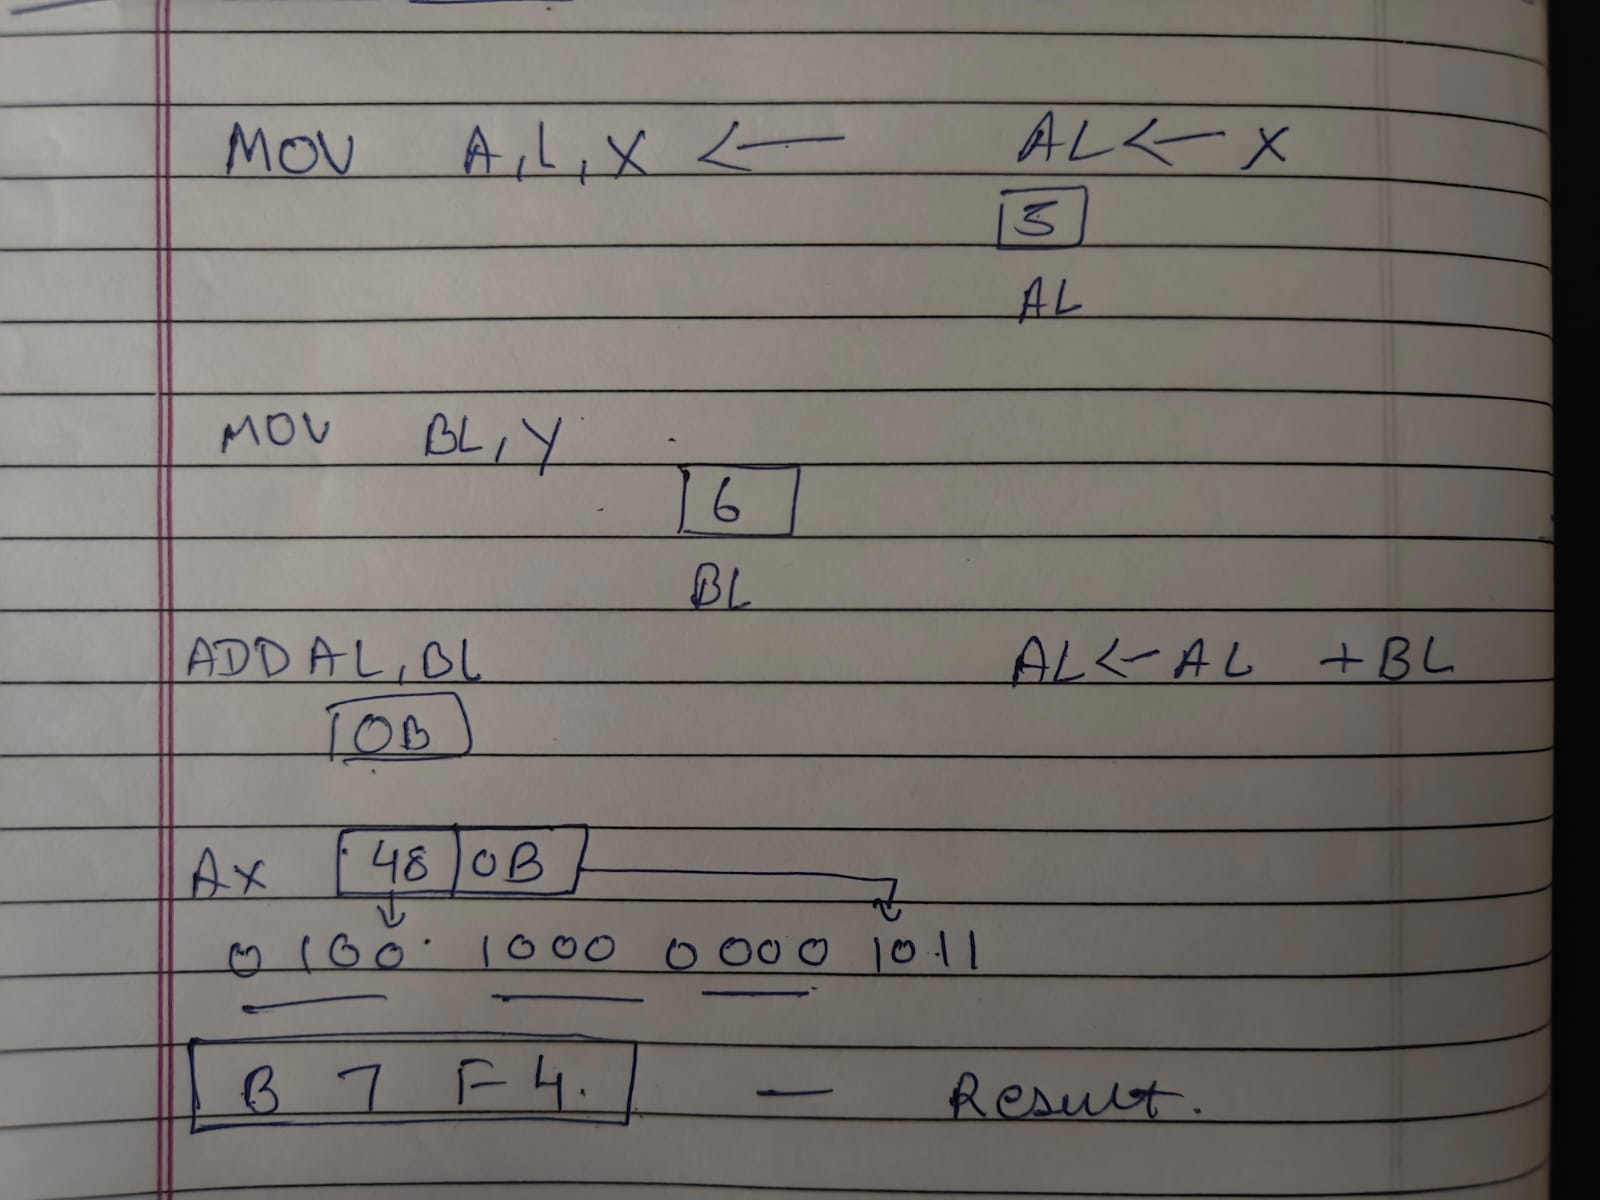 MOV A,L,X ← AL ← X
5
AL
MOV BL,Y
6
BL
ADD AL,BL AL ← AL + BL
0B
AX 48 0B
0100 1000 0000 1011
B 7 F 4. — Result.